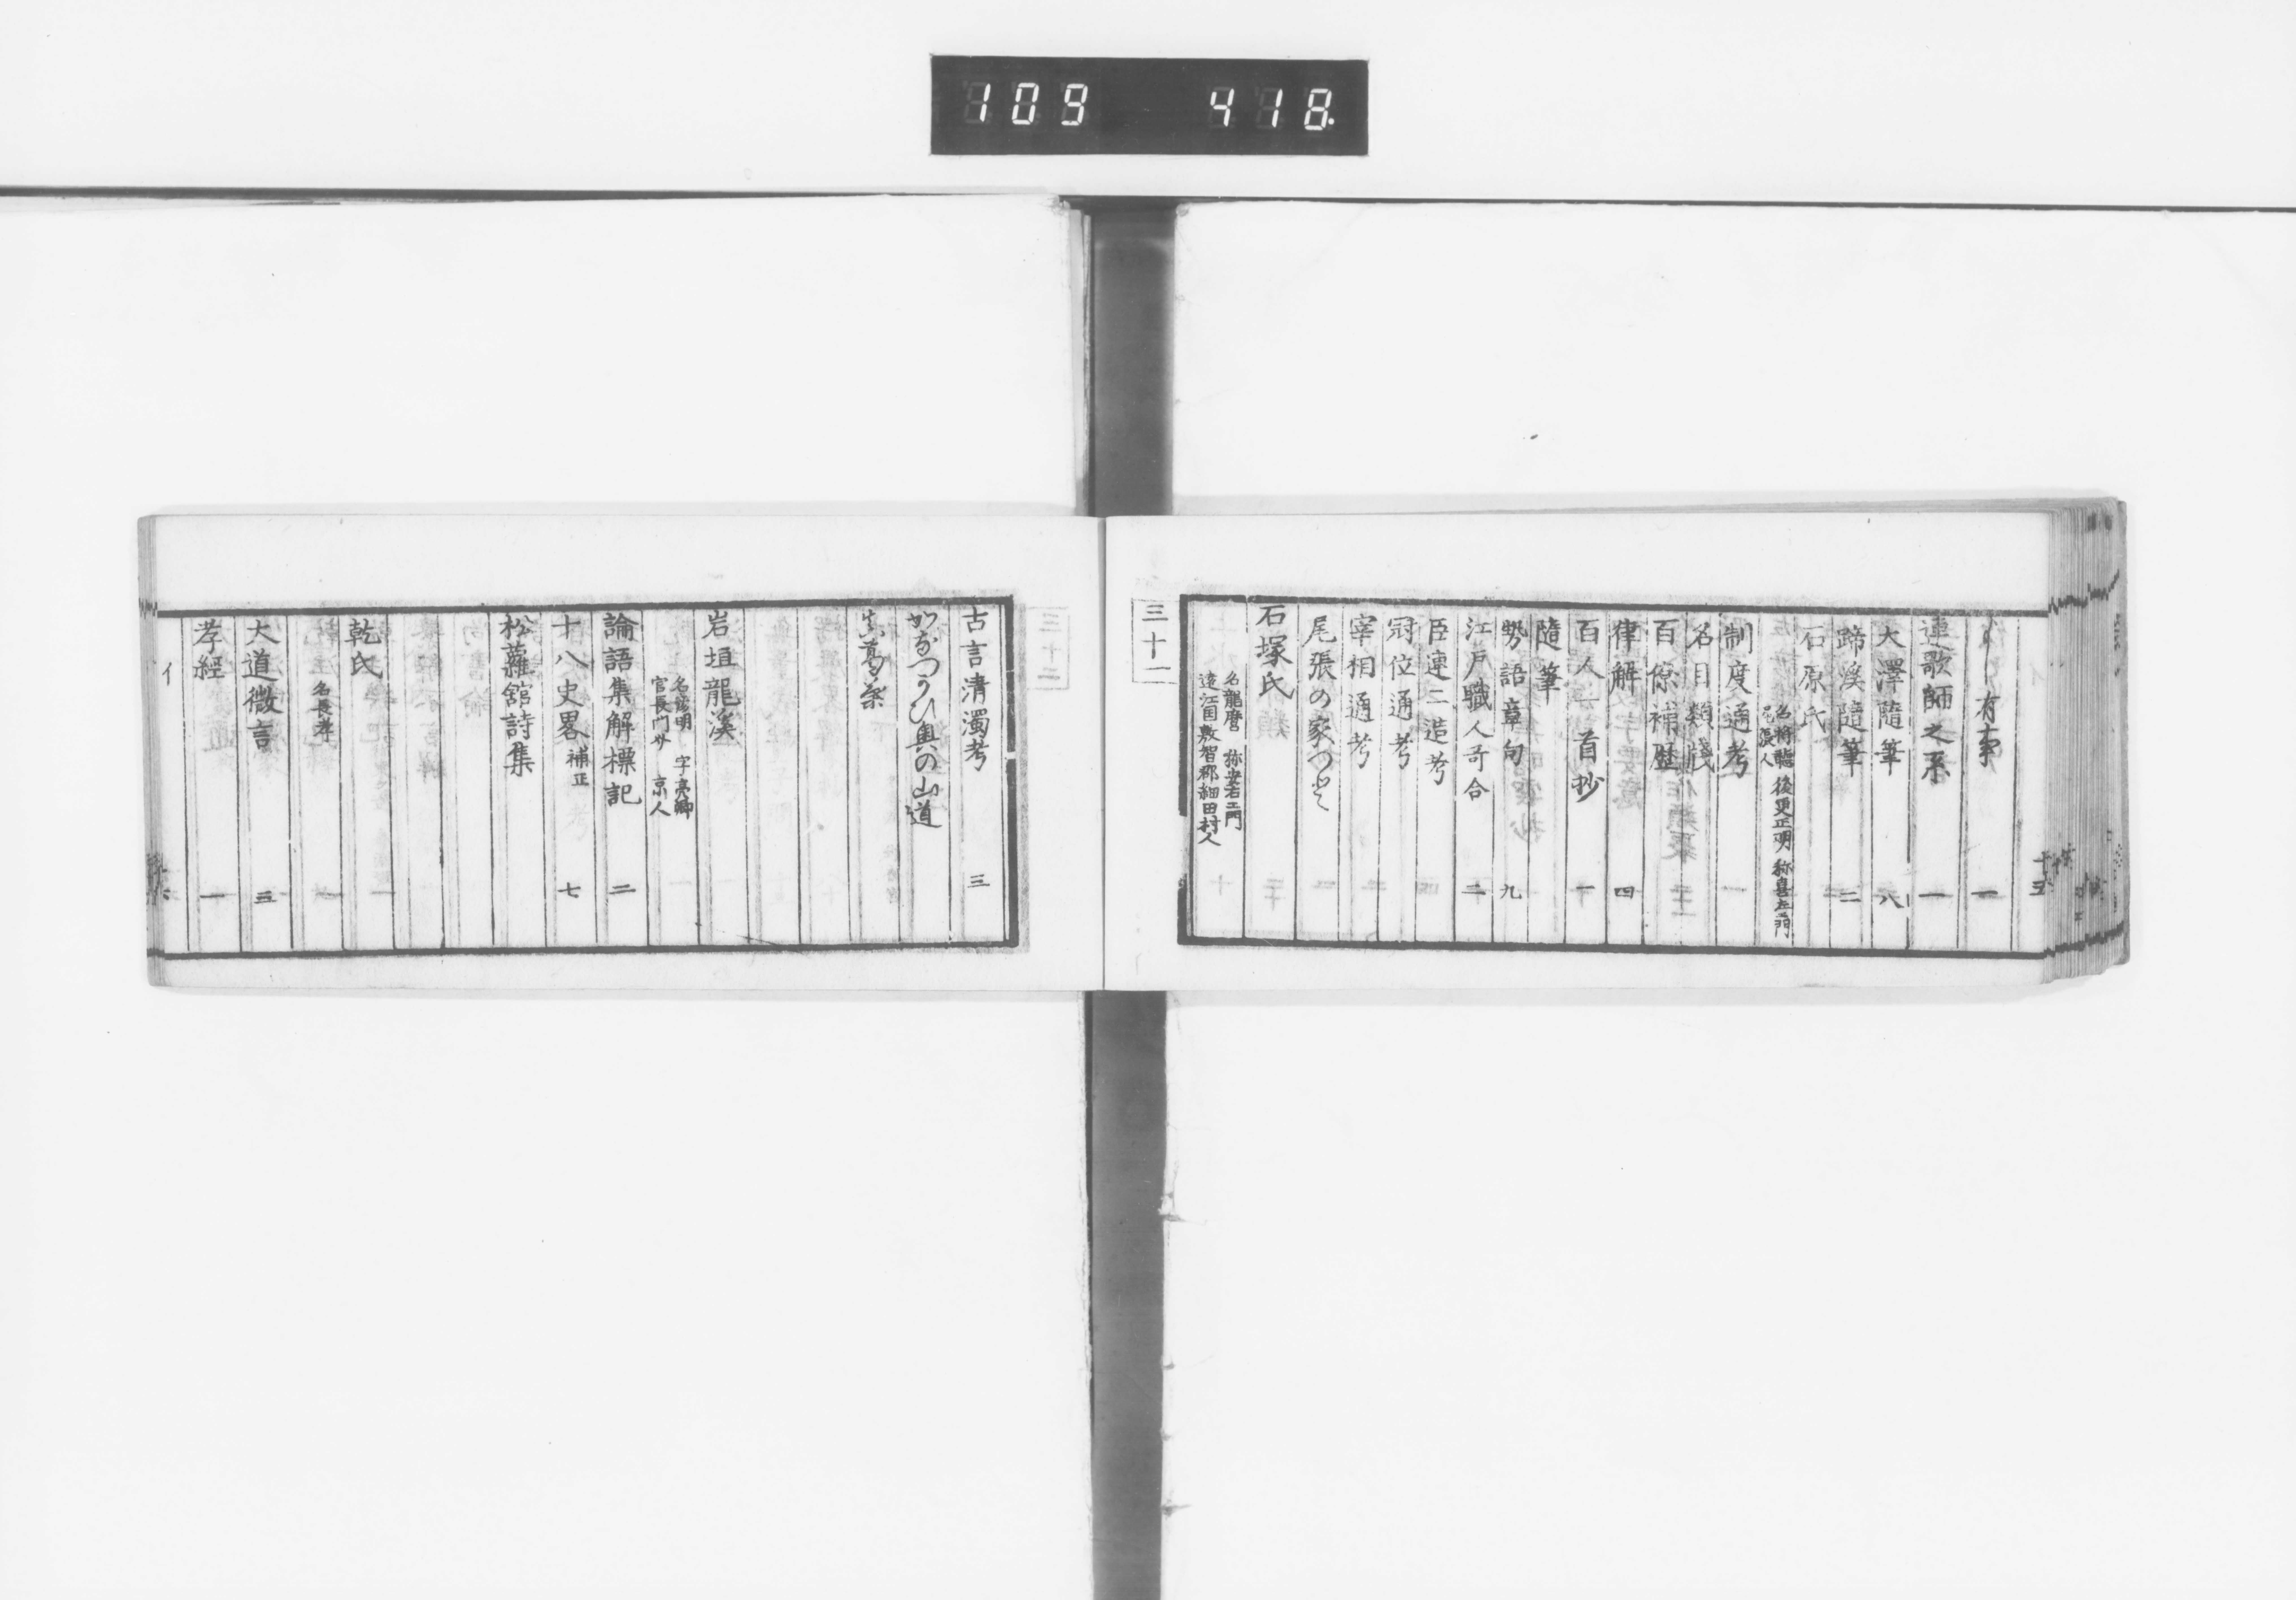 109 418
有事 一
連歌師之系 一
大澤隨筆 八
蹄溪隨筆 二
石原氏
後更正明 称喜左エ門
尾張人
制度通考
名目類棧
百僚補歴
律解 四
百人一首抄 一
隨筆
勢語章句 九
江戸職人哥合 二
臣連二造考
冠位通考
宰相通考
尾張の家つと
石塚氏
名龍麿 称安右エ門
遠江国敷智郡細田村人
三十一
古言清濁考 三
奥の山道
真葛
岩垣龍溪
名彦明 字亮卿
官長門介 京人
論語集解標記 二
十八史畧補正 七
松蘿舘詩集
乾氏
名長孝
大道微言 三
孝經 一
イ